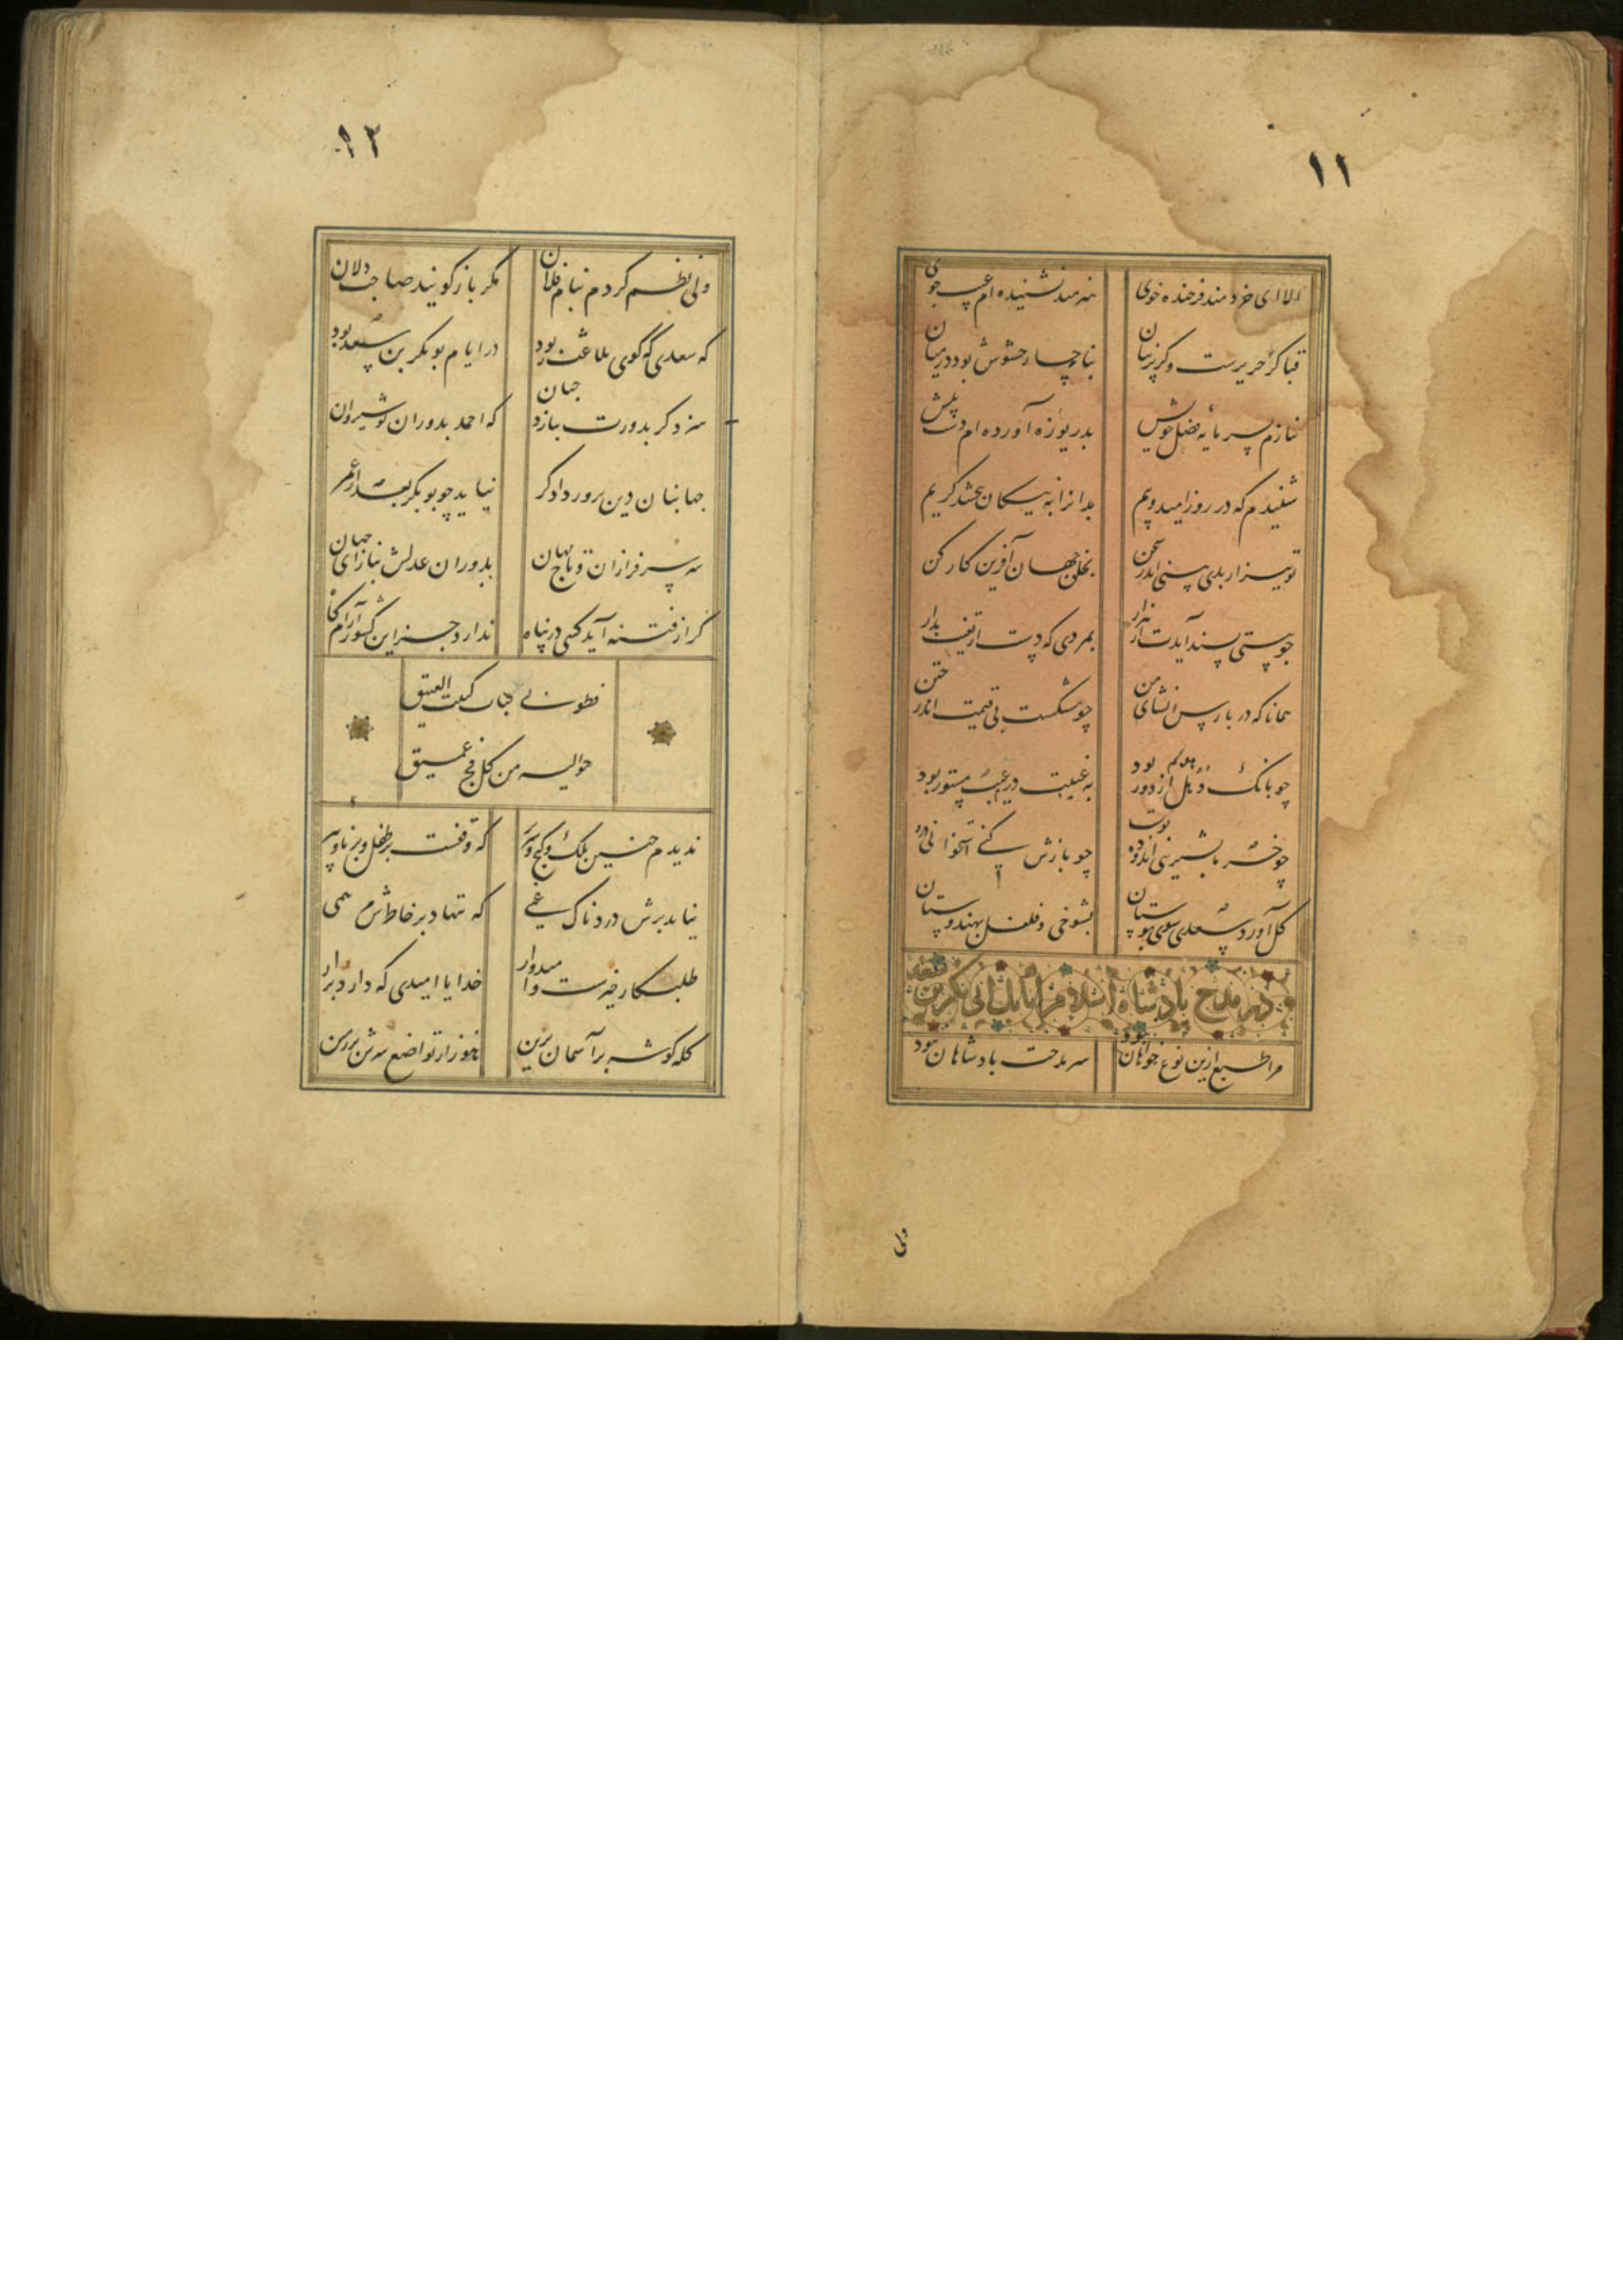 ۱۱
الا ای خردمند فرخنده خوی هنرمند نشنیده‌ام عیب جوی
قبا گر حریرست و گر پرنیان بناچار حشوش بود در میان
ننازم بسرمایهٔ فضل خویش بدریوزه آورده‌ام دست پیش
شنیدم که در روز امید و بیم بدانرا به نیکان ببخشد کریم
تو نیز ار بدی بینی اندر سخن بخلق جهان آفرین کار کن
چو بیتی پسند آیدت از هزار بمردی که دست از تعنت بدار
همانا که در پارس انشای من چو مشکست بی قیمت اندر ختن
چو بانگ دهل از دور بود به غیبت در عیب مستور بود
گل آورد سعدی سوی بوستان بشوخی و فلفل بهندوستان
چو خرما بشیرینی اندوده پوست چو بازش کنی استخوانی دروست
در مدح بادشاه اسلام اتابک ابی بکر بن سعد
مرا طبع ازین نوع خواهان نبود سر مدحت بادشاهان نبود
ولی
۱۲
ولی نظم کردم بنام فلان مگر باز گویند صاحب دلان
که سعدی که گوی بلاغت ربود در ایام بوبکر بن سعد بود
سزد گر بدورت بنازد جهان که احمد بدوران نوشیروان
جهانبان دین پرور دادگر نیاید چو بوبکر بعد از عمر
سر سرفرازان و تاج مهان بدوران عدلش بناز ای جهان
گر از فتنه آید کسی در پناه ندارد جز این کشور آرامگاه
فطوبی لباب کبیت العتیق
حوالیه من کل فج عمیق
ندیدم چنین ملک و گنج و سریر که وقفست بر طفل و برنا و پیر
نیامد برش دردناک غمی که ننهاد بر خاطرش مرهمی
طلبکار خیرست و امیدوار خدایا امیدی که دارد برآر
کله گوشه بر آسمان برین هنوز از تواضع سرش بر زمین